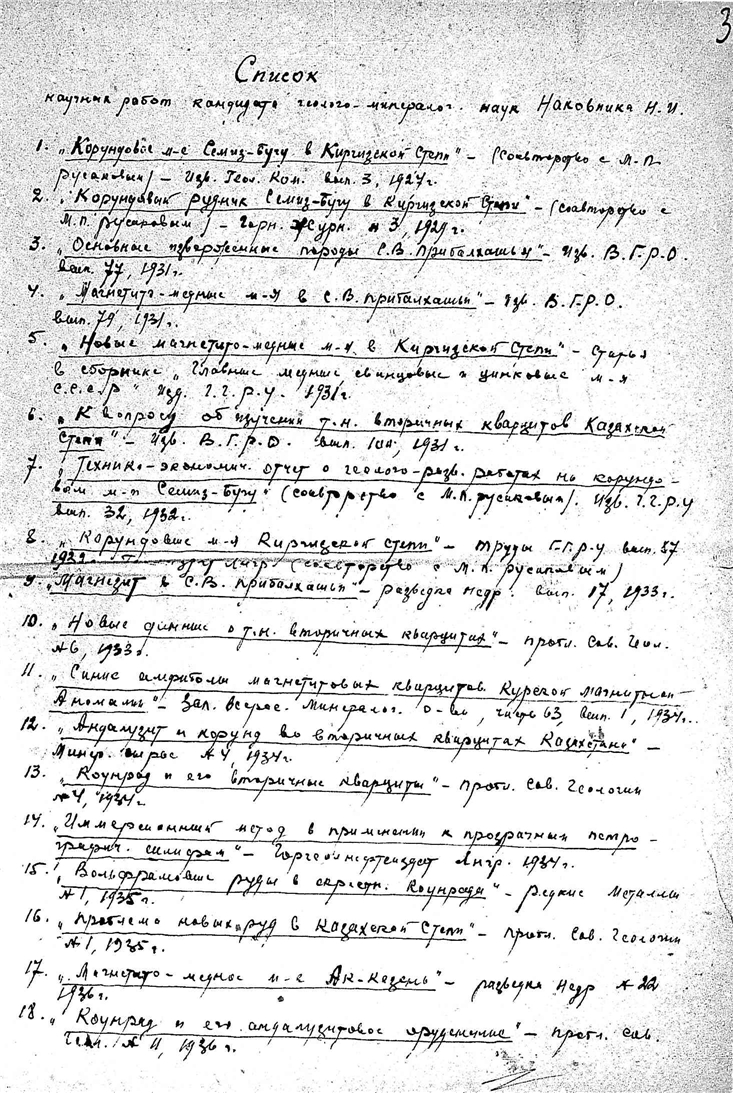 3
Список
научных работ кандидата геолого-минералог. наук Наковника Н.И.
1. „Корундовое м-е Семиз-Бугу в Киргизской Степи" – (соавторство с М.П.
Русаковым) – Изв. Геол. Ком. вып. 3, 1927г.
2. „Корундовый рудник Семиз-Бугу в Киргизской Степи" – (соавторство с
М.П. Русаковым) – Горн. Журн. № 3, 1929г.
3. „Основные изверженные породы С.В. Прибалхашья" – Изв. В.Г.Р.О.
вып. 77, 1931г.
4. „Магнетито-медные м-я в С.В. Прибалхашьи" – Изв. В.Г.Р.О.
вып. 79, 1931г.
5. „Новые магнетито-медные м-я в Киргизской Степи" – Статья
в сборнике „Главные медные свинцовые и цинковые м-я
С.С.С.Р" Изд. Г.Г.Р.У. 1931г.
6. „К вопросу об изучении т.н. вторичных кварцитов Казахской
Степи" – Изв. В.Г.Р.О. вып. 1931г.
7. „Технико-экономич. отчет о геолого-разв. работах на корундо-
вом м-и Семиз-Бугу" (соавторство с М.П. Русаковым). Изв. Г.Г.Р.У
вып. 32, 1932г.
8. „Корундовые м-я Киргизской степи" – Труды Г.Г.Р.У вып. 57
(соавторство с М.П. Русаковым)
9. „Магнезит в С.В. Прибалхашьи" – разведка недр. вып. 17, 1933г.
10. „Новые данные о т.н. вторичных кварцитах" – пробл. Сов. Геол.
№ 6, 1933г.
11. „Синие амфиболы магнетитовых кварцитов Курской Магнитной
Аномалии" – Зап. Всерос. Минералог. о-ва, часть 63, вып. 1, 1934г.
12. „Андалузит и корунд во вторичных кварцитах Казахстана" –
Минер. сырье № 4, 1934г.
13. „Коунрад и его вторичные кварциты" – пробл. Сов. Геологии
№ 4, 1934г.
14. „Иммерсионный метод в применении к прозрачным петро-
графич. шлифам" – Горгеонефтеиздат Лнгр. 1934г.
15. „Вольфрамовые руды в окрестн. Коунрада" – Редкие Металлы
№ 1, 1935г.
16. „Проблема новых руд в Казахской Степи" – пробл. Сов. Геологии
№ 1, 1935г.
17. „Магнетито-медное м-е – разведка недр № 22
1936г.
18. „Коунрад и его андалузитовое оруденение" – пробл. Сов.
Геол. № 11, 1936г.